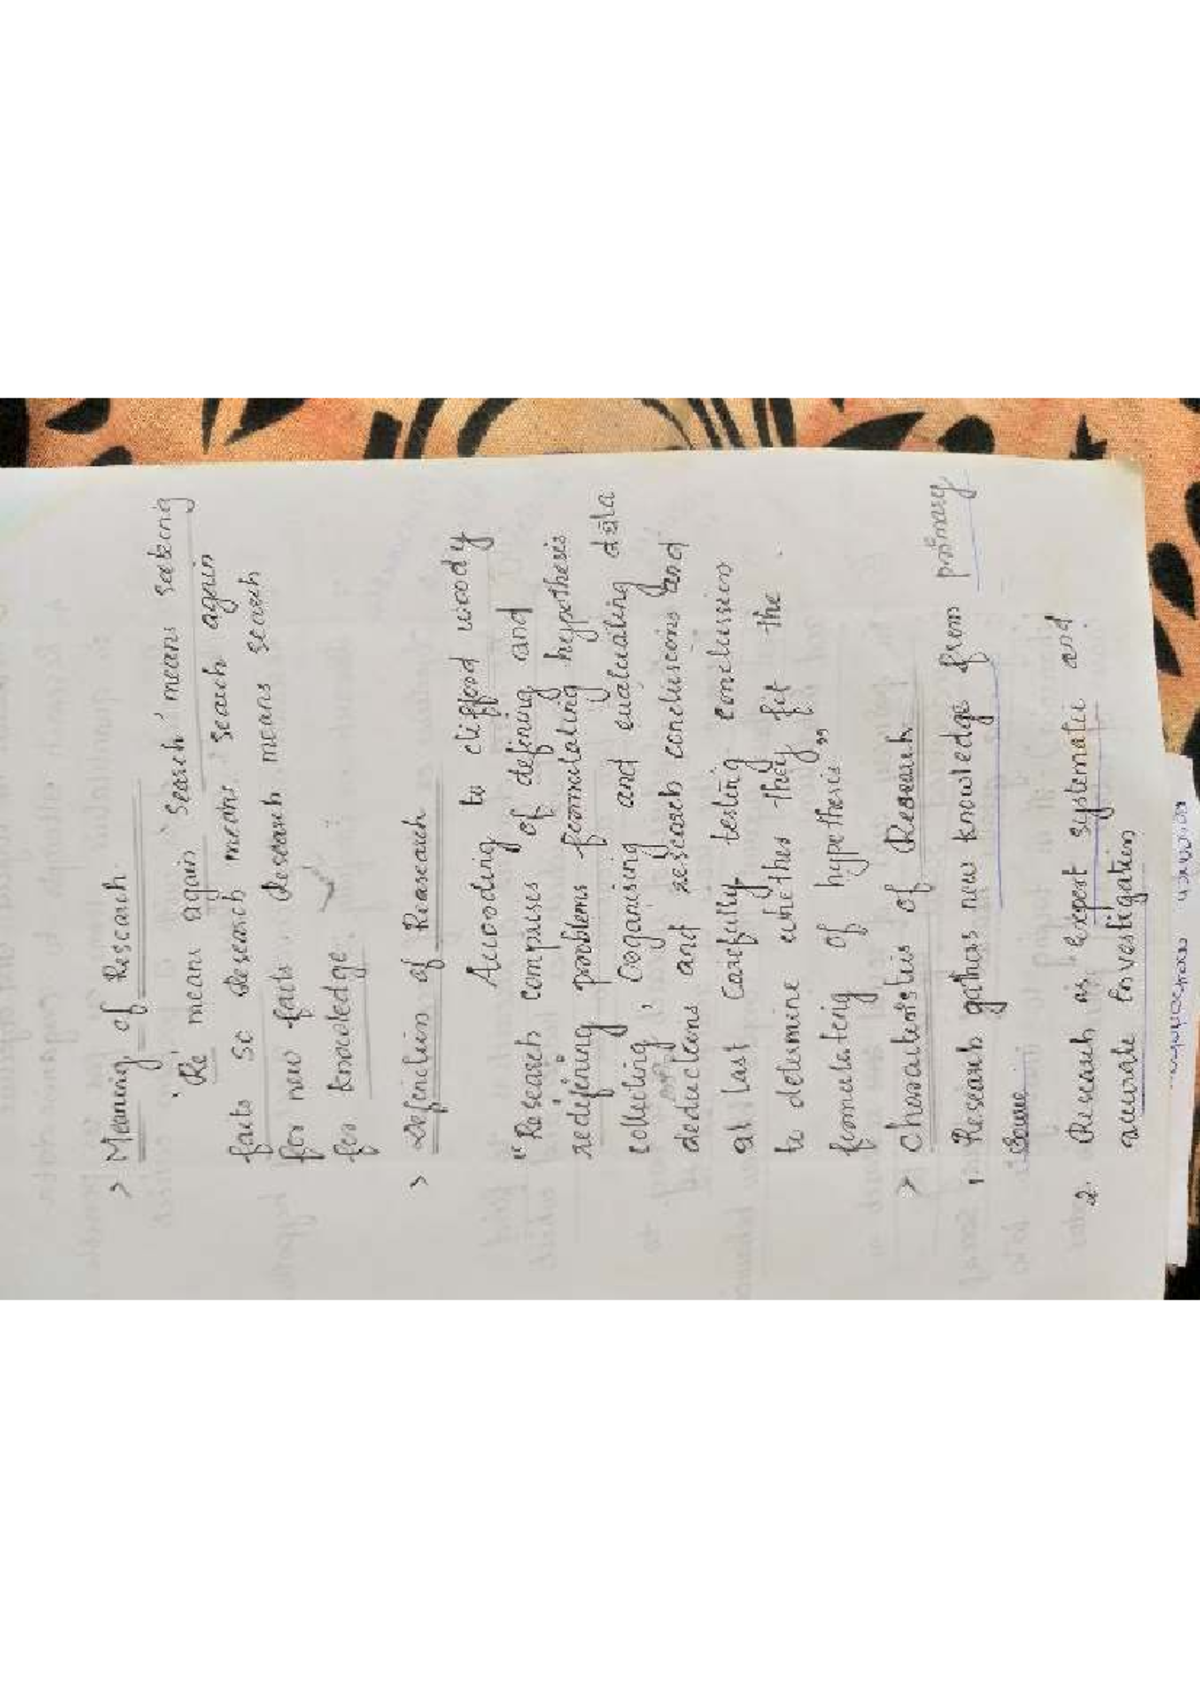 > Meaning of Research
'Re' means again 'Search' means seeking
facts so Research means search again
for new facts. Research means search
for knowledge.
> Definition of Research
According to clifford woody
"Research comprises of defining and
redefining problems formulating hypothesis
collecting, Organising and evaluating data
deductions and research conclusions and
at last carefully testing conclusion
to determine whether they fit the
formulating of hypothesis"
> Characteristics of Research
1. Research gathers new knowledge from primary
source
2. Research is expert systematic and
accurate investigation